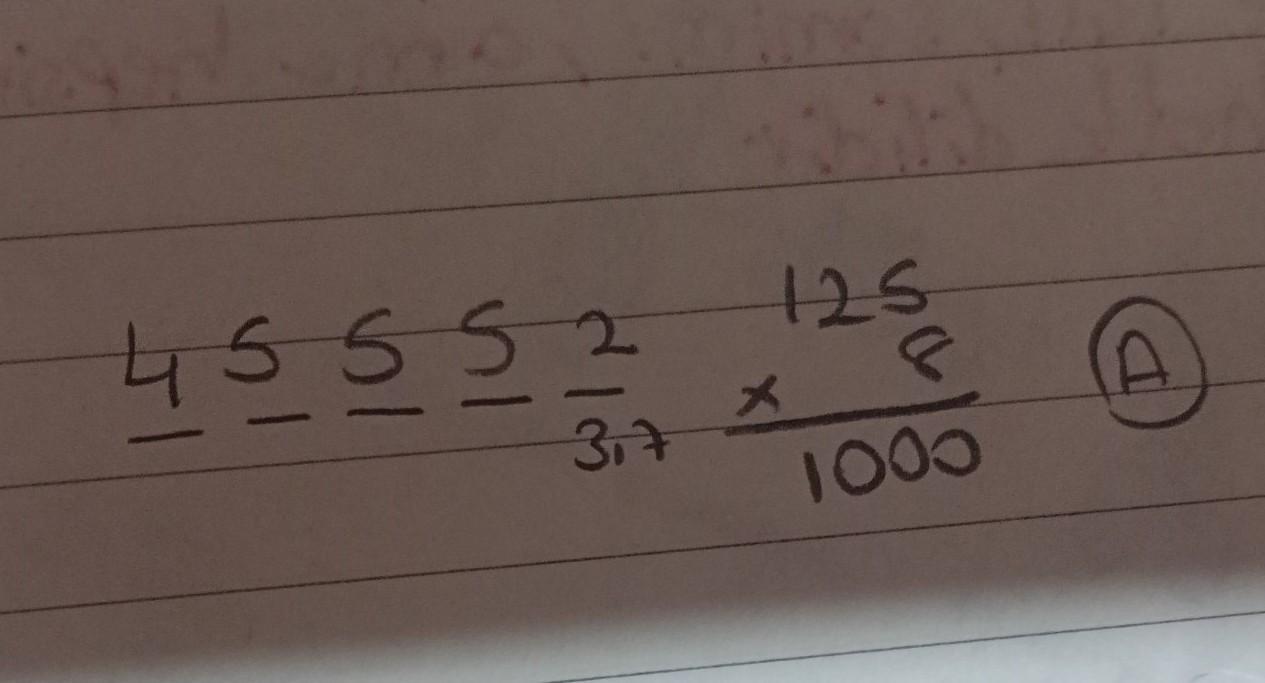 4 5 5 5 2
3,7
125
8
×
1000
A